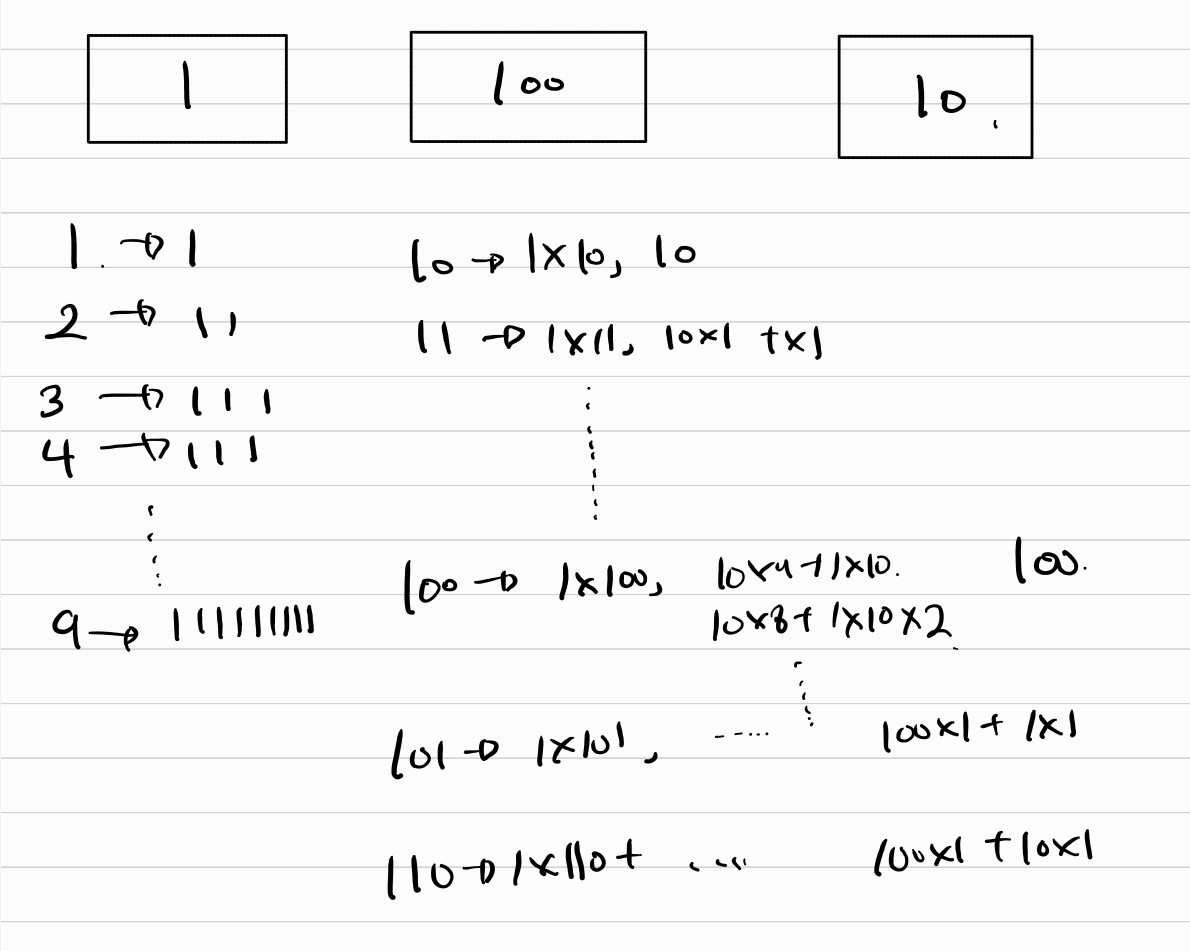 1 100 10.
1. → 1
10 → 1×10, 10
2 → 11
11 → 1×11, 10×1 +×1
3 → 111
4 → 111
100 → 1×100, 10×9+1×10. 100.
10×8+ 1×10×2
9 → 111111111
101 → 1×101, ..... 100×1+ 1×1
110 → 1×110+ .... 100×1 +10×1